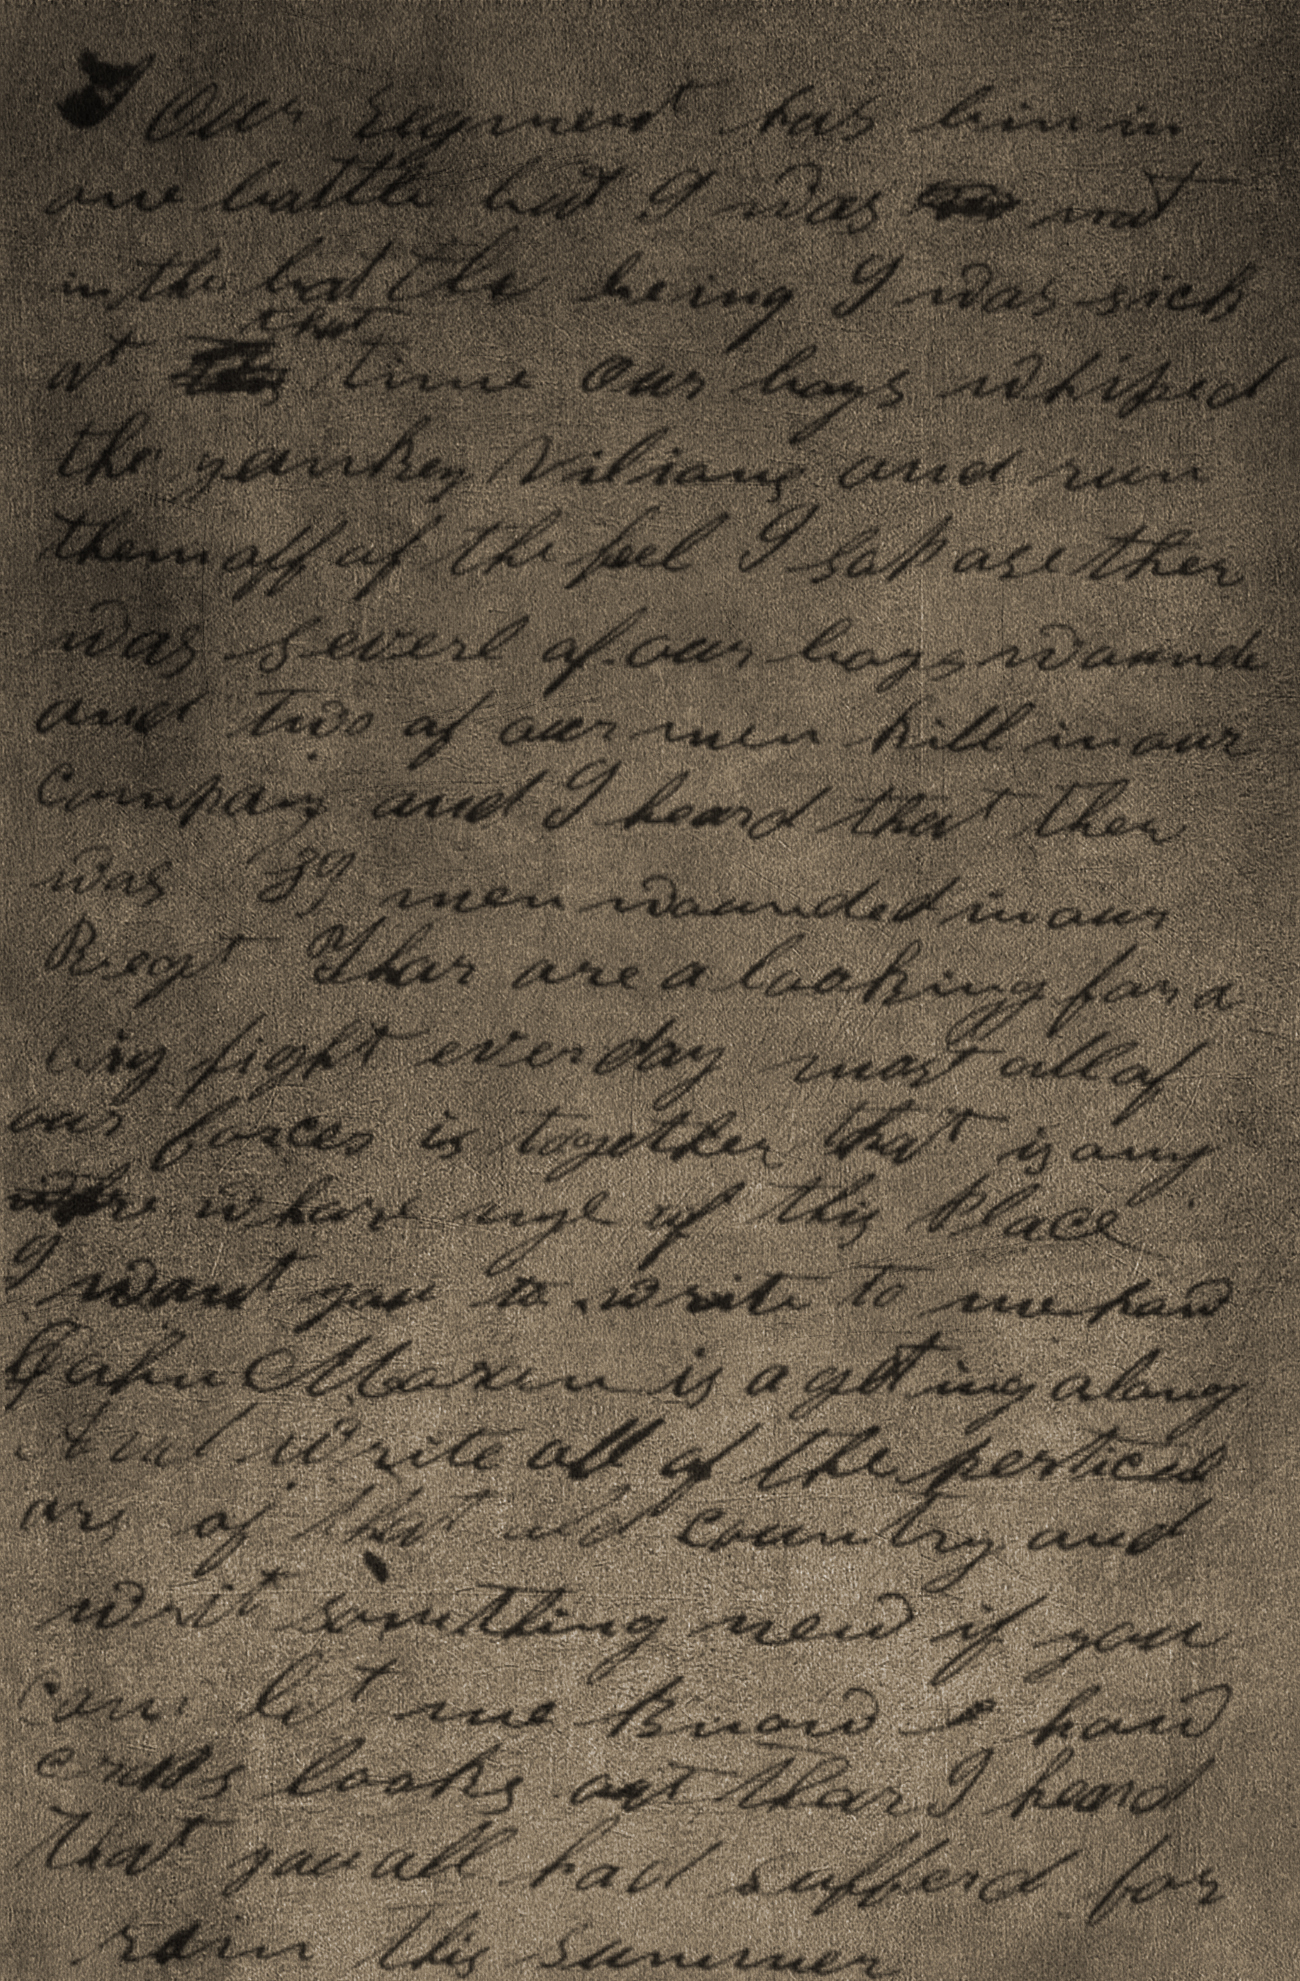 Our regment has bin in
one battle but I was not
in the battle being I was sick
at that time our boys whiped
the yankey viliang and run
them off of the feel I sopose ther
was severl of our boys wounde
and two of our men kill in our
Company and I heard that ther
was 39 men wounded in our
Regt Thar are a looking for a
big fight ever day most all of
our forces is together that is any
whare nye of this place
I want you to write to me how
John Maxen is a getting along
And write all of the perticul
ars of that old country and
writ something new if you
can let me know how
crops looks out thar I heard
that you all had sufferd for
rain this summer